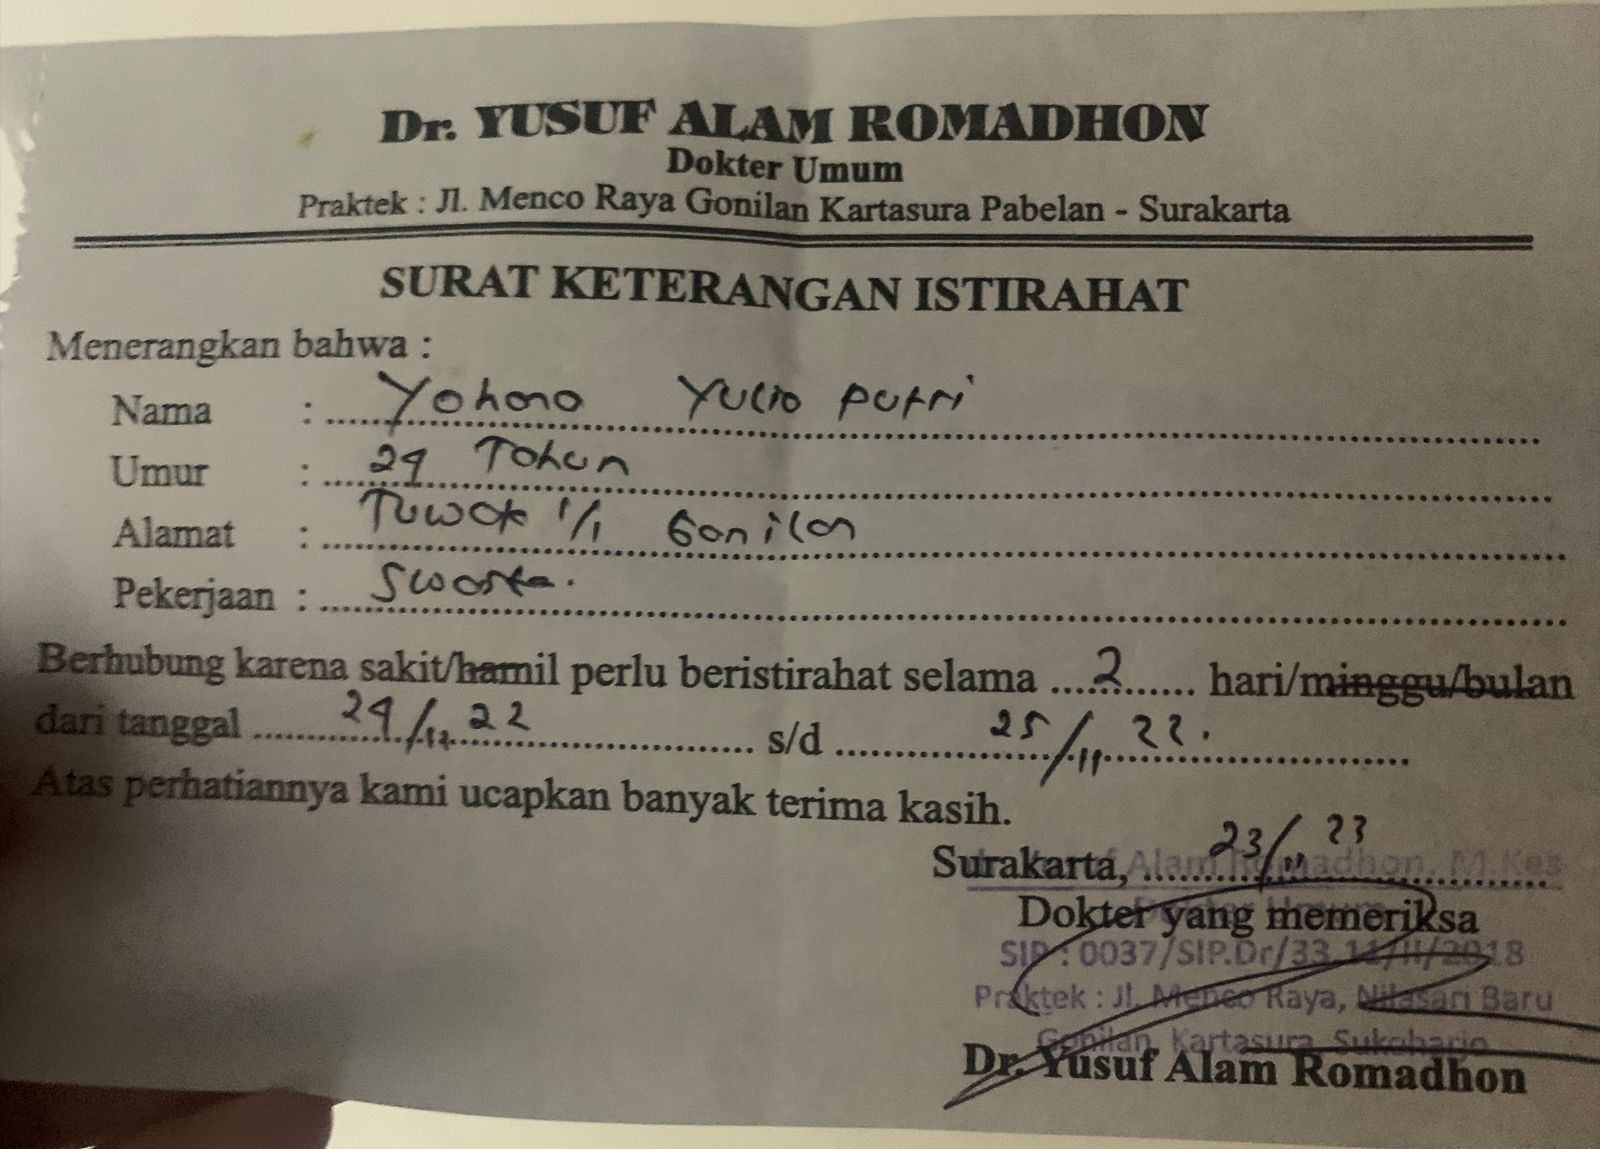 Dr. YUSUF ALAM ROMADHON
Dokter Umum
Praktek : Jl. Menco Raya Gonilan Kartasura Pabelan - Surakarta
SURAT KETERANGAN ISTIRAHAT
Menerangkan bahwa :
Nama : Yohana Yulia putri
Umur : 29 Tahun
Alamat : Tuwak 1/1 Gonilan
Pekerjaan : Swasta.
Berhubung karena sakit/hamil perlu beristirahat selama 2 hari/minggu/bulan
dari tanggal 24/ 22 s/d 25/11 22.
Atas perhatiannya kami ucapkan banyak terima kasih.
Surakarta, 23/11 23
Alam Romadhon, M.Kes
Dokter yang memeriksa
Dokter Umum
SIP : 0037/SIP.Dr/33.11/II/2018
Praktek : Jl. Menco Raya, Nilasari Baru
Gonilan, Kartasura, Sukoharjo
Dr. Yusuf Alam Romadhon